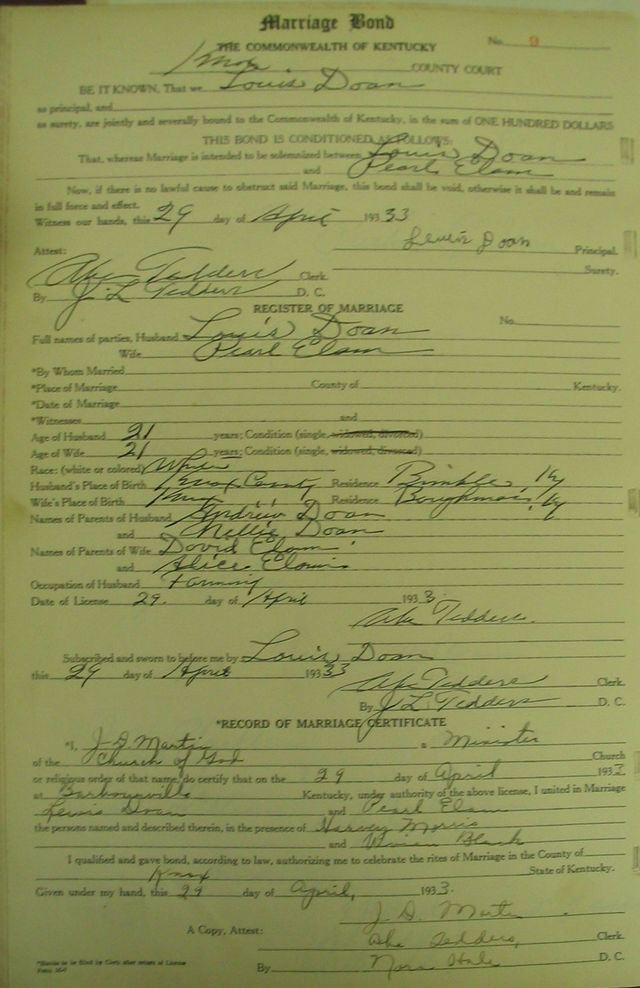 Marriage Bond
THE COMMONWEALTH OF KENTUCKY No. 9
Knox COUNTY COURT
BE IT KNOWN, That we Louis Doan
as principal, and
as surety, are jointly and severally bound to the Commonwealth of Kentucky, in the sum of ONE HUNDRED DOLLARS
THIS BOND IS CONDITIONED AS FOLLOWS:
That, whereas Marriage is intended to be solemnized between Louis Doan
and Pearl Elam
Now, if there is no lawful cause to obstruct said Marriage, this bond shall be void, otherwise it shall be and remain
in full force and effect.
Witness our hands, this 29 day of April 193 33
Lewis Doan Principal.
Attest: Surety.
Abe Tedders Clerk.
By J. L Tedders D. C.
REGISTER OF MARRIAGE
No.
Full names of parties, Husband Louis Doan
Wife Pearl Elam
*By Whom Married
*Place of Marriage County of Kentucky.
*Date of Marriage
*Witnesses and
Age of Husband 21 years; Condition (single, widowed, divorced)
Age of Wife 21 years; Condition (single, widowed, divorced)
Race: (white or colored) White
Husband's Place of Birth Knox County Residence Bimble, Ky
Wife's Place of Birth Knox Residence Ky
Names of Parents of Husband Andrew Doan
and Nellie Doan
Names of Parents of Wife David Elam
and Alice
Occupation of Husband Farming
Date of License 29. day of April 193 3.
Abe Tedders.
Subscribed and sworn to before me by Louis Doan
this 29 day of April 193 33
Abe Tedders Clerk.
By J L Tedders D. C.
*RECORD OF MARRIAGE CERTIFICATE
*I, J. D. Martin a Minister
of the Church of God Church
or religious order of that name, do certify that on the 29 day of April 193 3
at Barbourville Kentucky, under authority of the above license, I united in Marriage
Lewis Doan and Pearl Elam
the persons named and described therein, in the presence of Harvey Morris
and Vivian Black
I qualified and gave bond, according to law, authorizing me to celebrate the rites of Marriage in the County of
Knox State of Kentucky.
Given under my hand, this 29 day of April, 193 3.
J. D. Martin
A Copy, Attest: Abe Tedders, Clerk.
By Nora Hale D. C.
*Blanks to be filled by Clerk after return of License